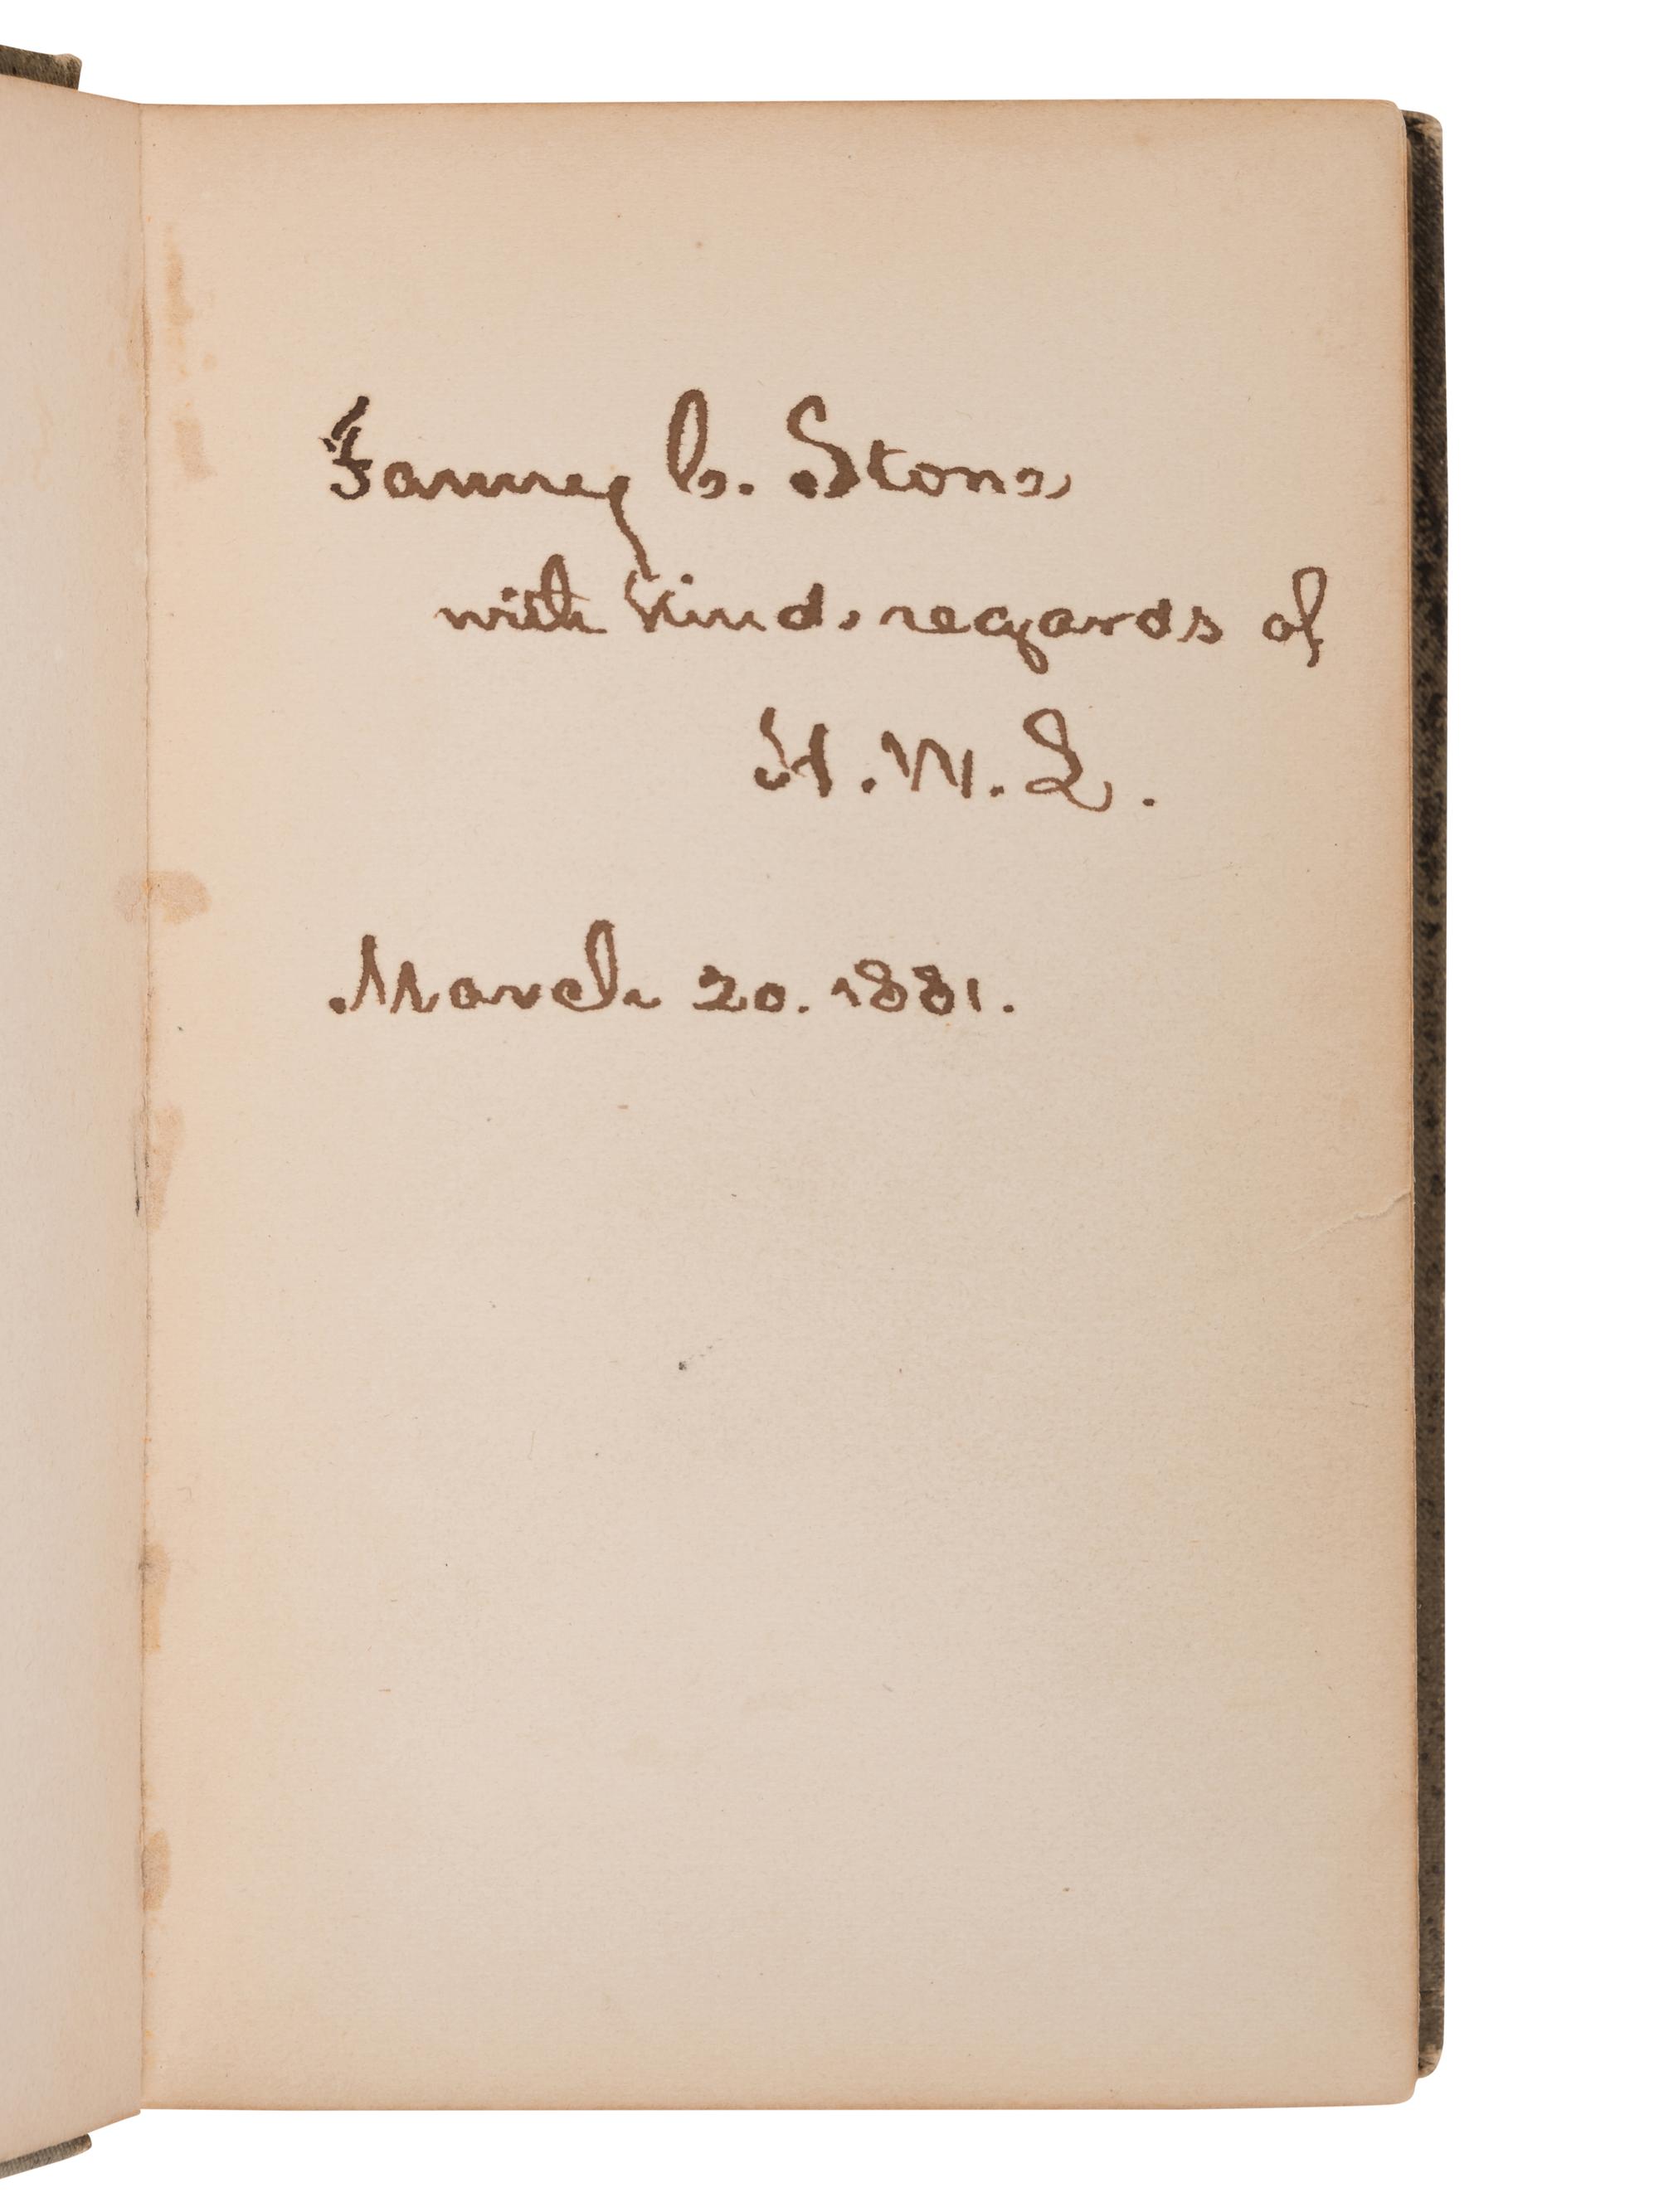 Fanny C. Stone
with kind regards of
H. W. L.
March 20. 1881.